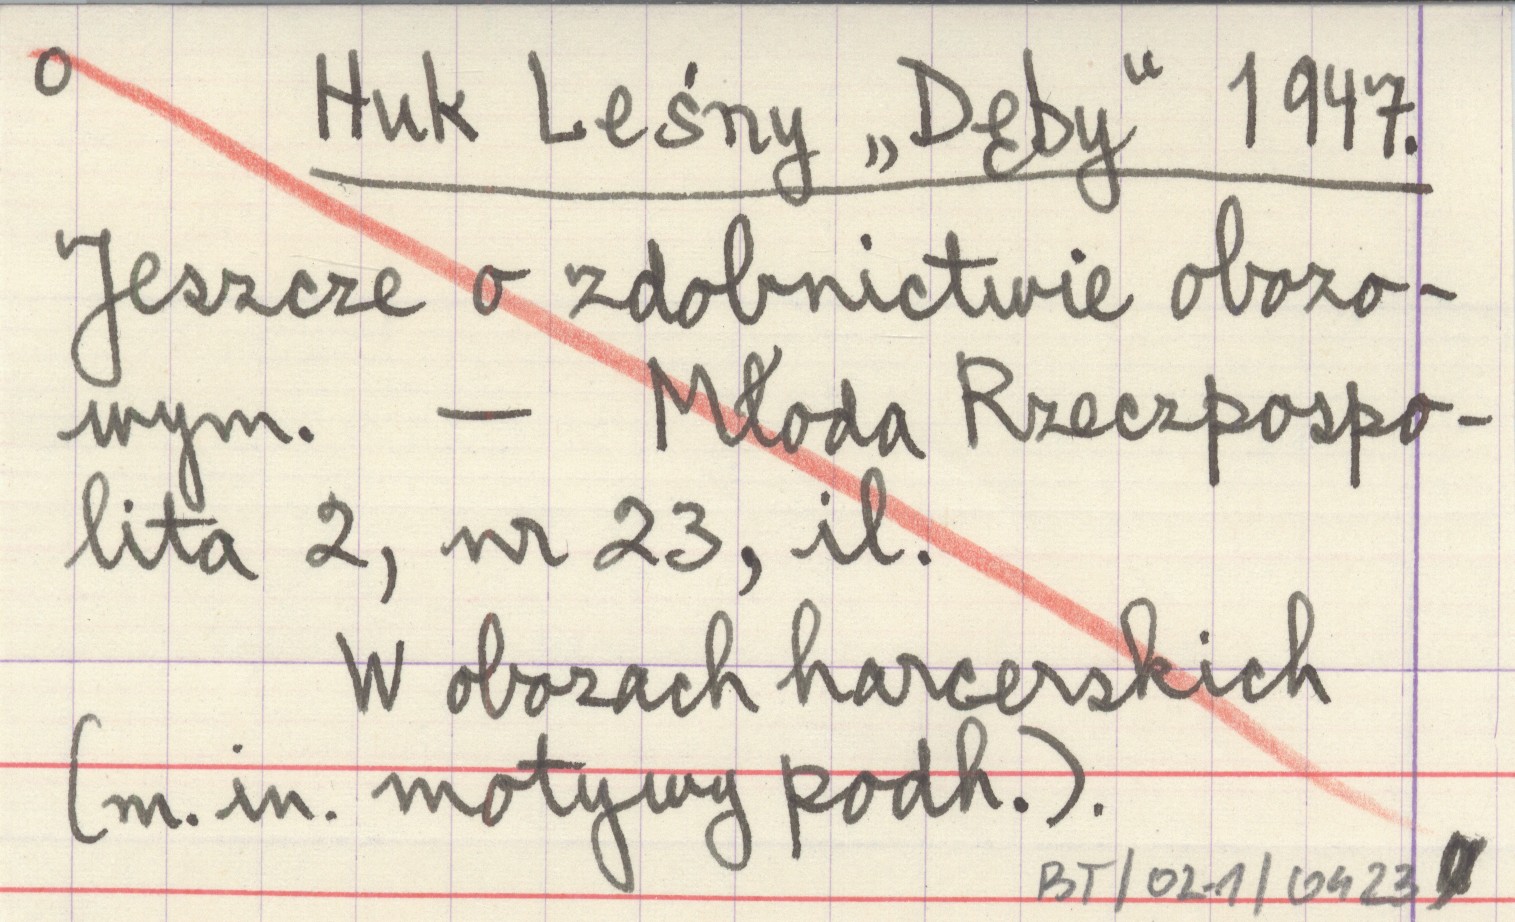 o Huk Leśny „Dęby“ 1947.
Jeszcze o zdobnictwie obozo-
wym. — Młoda Rzeczpospo-
lita 2, nr 23, il.
W obozach harcerskich
(m. in. motywy podh.).
BT/02-1/0423